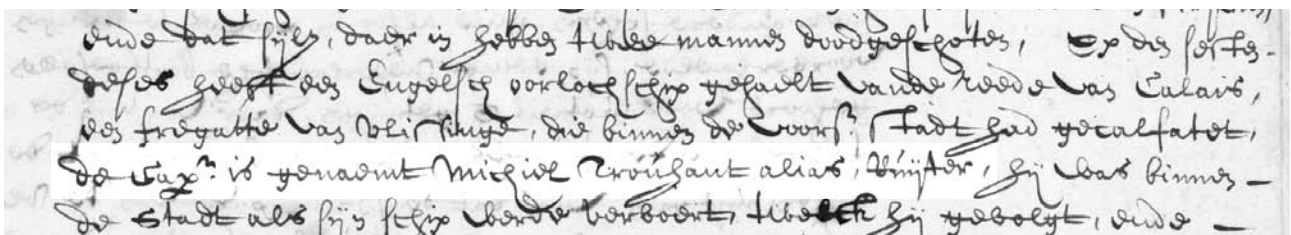 ende dat sijlz, daer in hebben twee mannen doodgeschoten, Op den sesten
deses heeft een Engelsch oorlochschip gehaelt vande reede van Calais,
een fregatte van Vlissinge, die binnen de voors.r stadt had gecalfatet,
de Capn. is genaemt Michiel Trouhant alias, Ruijter, hij was binnen
de stadt als sijn schip werde vervoert, twelck hij gevolgt, ende